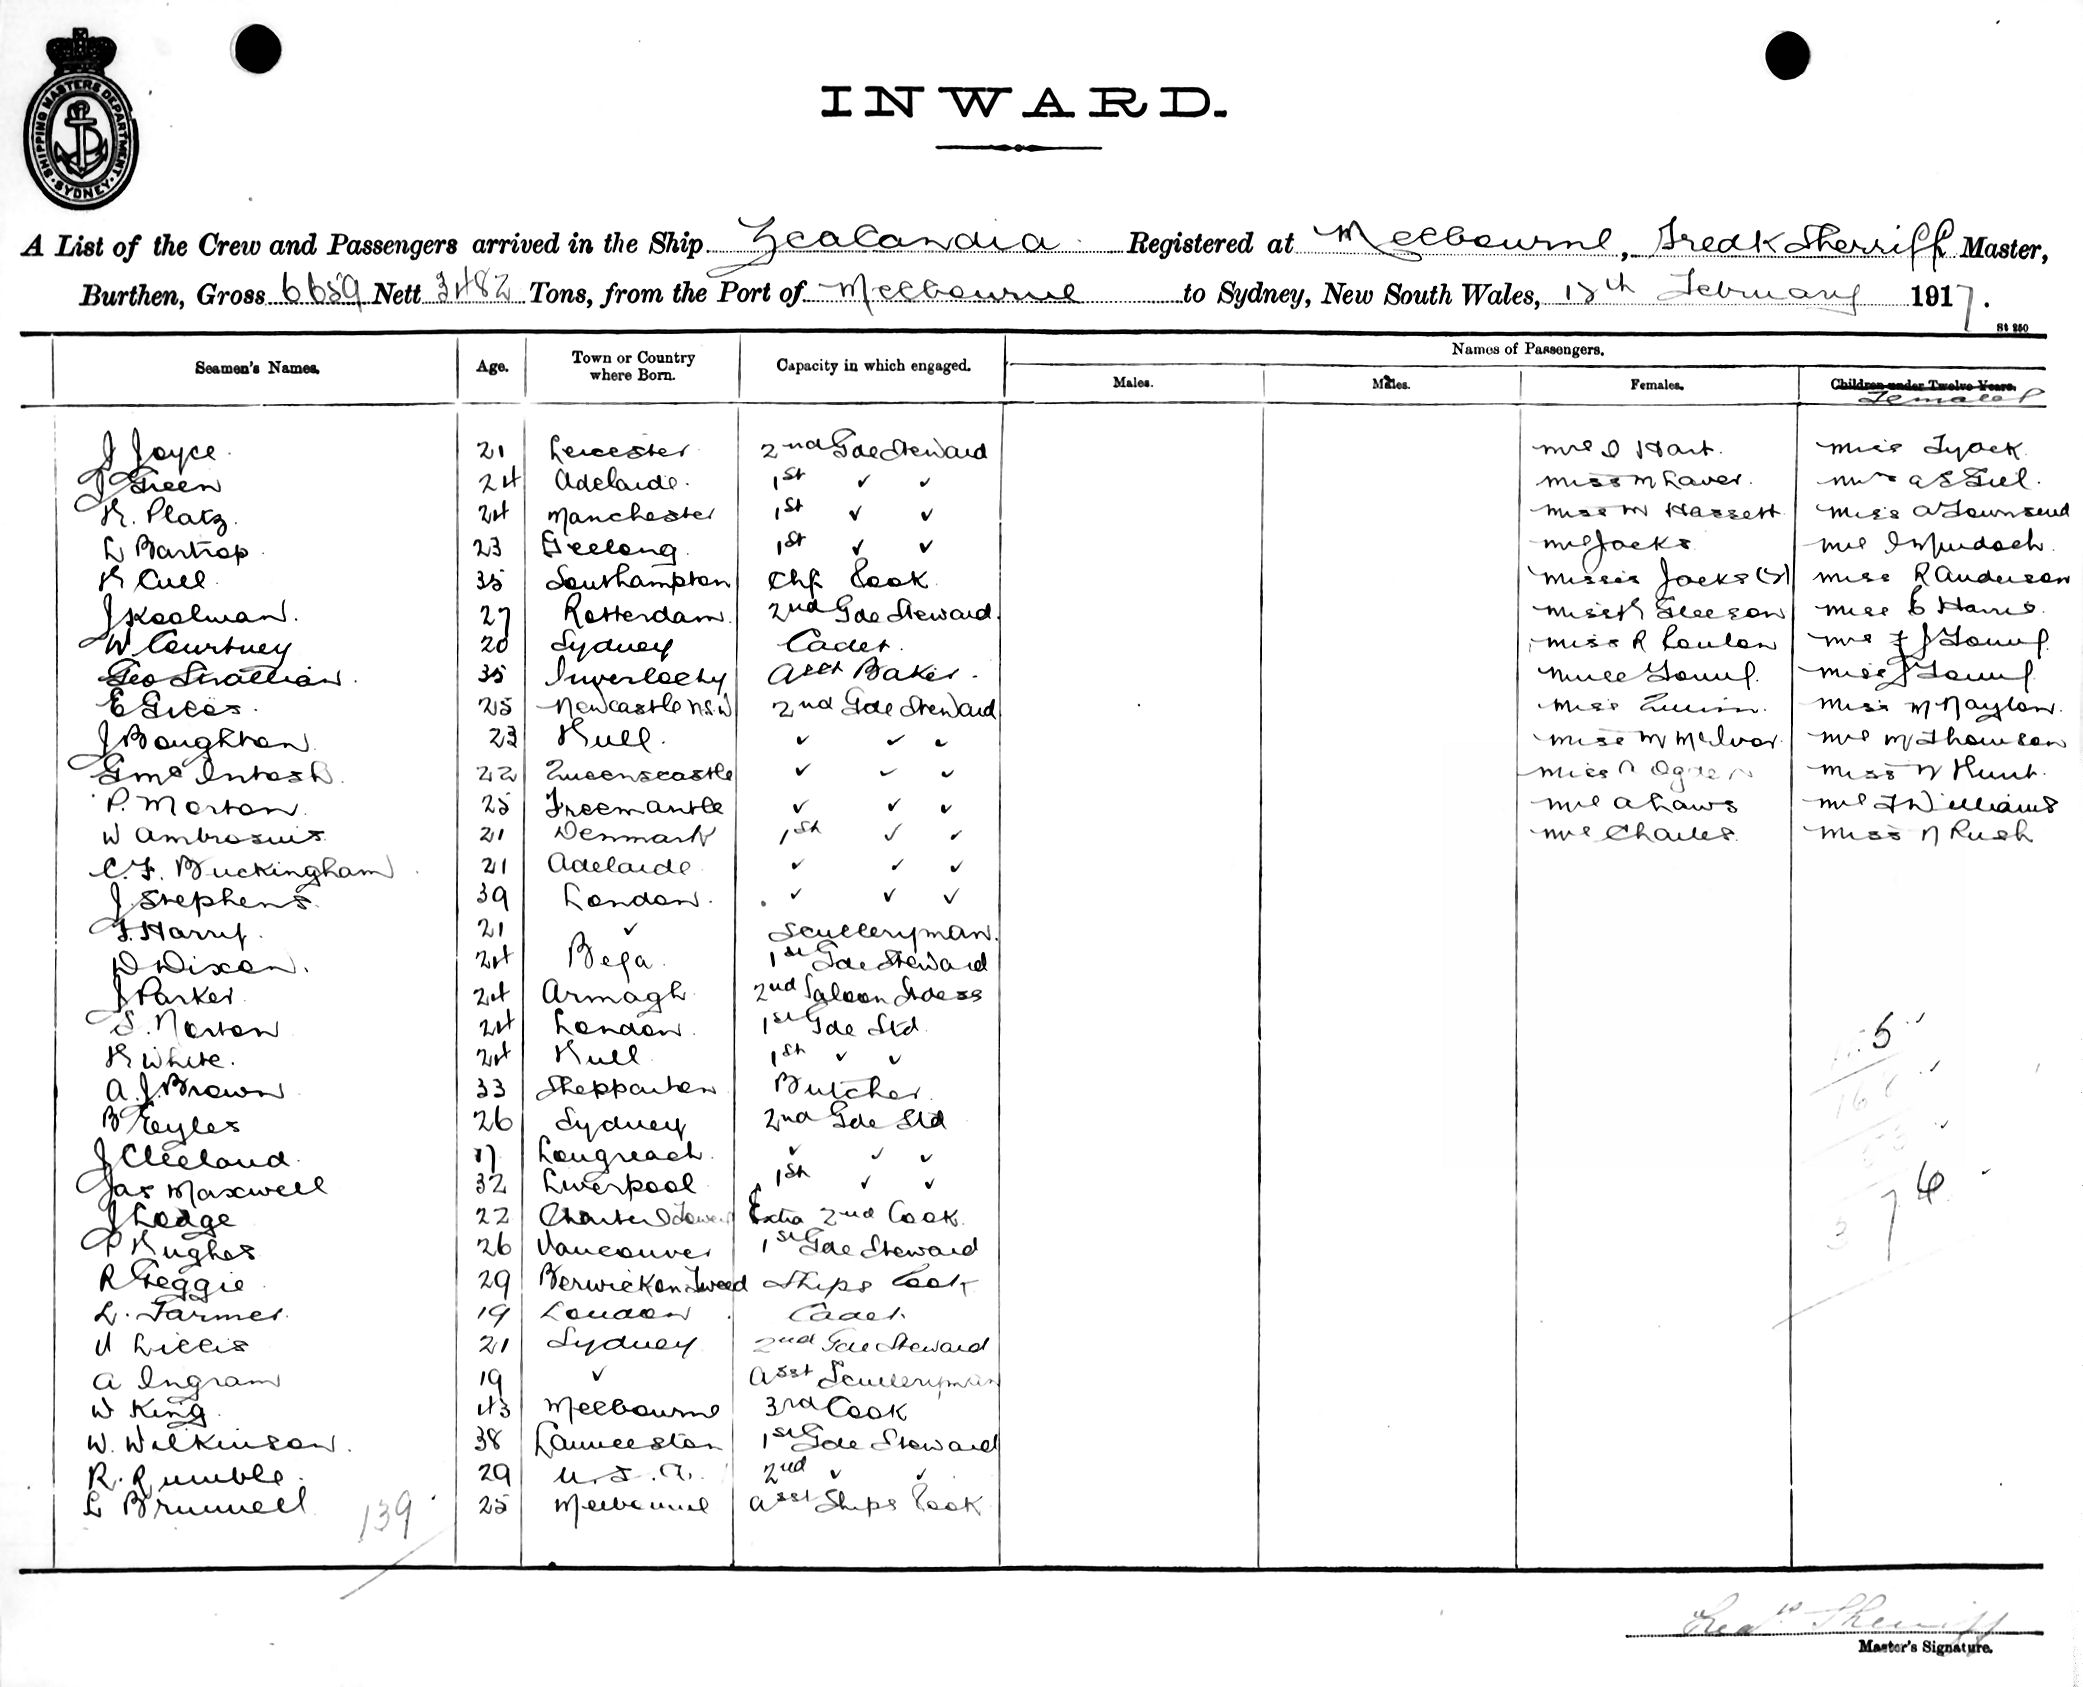 SHIPPING MASTERS DEPARTMENT
SYDNEY
INWARD.
A List of the Crew and Passengers arrived in the Ship Zealandia Registered at Melbourne, Fredk Sherriff Master,
Burthen, Gross 6659 Nett 3482 Tons, from the Port of Melbourne to Sydney, New South Wales, February 1917.
St 250
Seamen's Names. Age. Town or Country where Born. Capacity in which engaged. Names of Passengers.
Males. Males. Females. Children under Twelve Years. Females
J Joyce 21 Leicester 2nd Gde Steward Mrs I Hart. Miss Tyack.
J Green 24 Adelaide. 1st ✓ ✓ Miss M Laver. Mrs A E Giel.
H. Platz. 24 Manchester 1st ✓ ✓ Miss M Hassett Miss A Townsend
L Bartrop 23 Geelong. 1st ✓ ✓ Mrs Jacks Mrs I Murdoch.
H Cull 35 Southampton Chf Cook Misses Jacks Miss R Anderson
J Koolman. 27 Rotterdam 2nd Gde Steward. Miss K Gleeson Miss E Harris.
W Courtney 20 Sydney Cadet. Miss R Conlon Mrs F J
Geo 35 Inverlochy Asst Baker. Miss
E Giles. 25 Newcastle NSW 2nd Gde Steward Miss Quinn. Miss M Naylor.
J Boughton 23 Hull. ✓ ✓ ✓ Miss M McIvor. Mrs M Thomson
G McIntosh. 22 Queenscastle ✓ ✓ ✓ Miss Ogden Miss N Hunt.
P. Morton. 25 Freemantle ✓ ✓ ✓ Mrs A Laws Mrs F Williams
W Ambrosius 21 Denmark 1st ✓ ✓ Mrs Charles. Miss N Rush
C. F. Buckingham 21 Adelaide ✓ ✓ ✓
J. Stephens. 39 London. ✓ ✓ ✓
F. Harris. 21 ✓ Sculleryman.
W Dixon. 24 Bega 1st Gde Steward
J Parker. 24 Armagh 2nd Saloon Stdess
S. Norton 24 London. 1st Gde Std
H White. 24 Hull 1st ✓ ✓
A. J. Brown 33 Shepparton Butcher
B Eyles 26 Sydney 2nd Gde Std
J Cleeland. 17 Longreach. ✓ ✓ ✓
Jas Maxwell 32 Liverpool 1st ✓ ✓
J Lodge 22 Charters Towers Extra 2nd Cook.
P Hughes 26 Vancouver 1st Gde Steward
R Geggie 29 Berwick on Tweed Ships Cook
L. Farmer. 19 London Cadet.
V Lillis 21 Sydney 2nd Gde Steward
A Ingram 19 ✓ Asst Sculleryman
W King. 43 Melbourne 3rd Cook
W. Wilkinson. 38 Launceston 1st Gde Steward
R. Rumble. 29 U.S.A. 2nd ✓ ✓
L Brunnell 25 Melbourne Asst Ships Cook
139
Fredk Sherriff
Master's Signature.